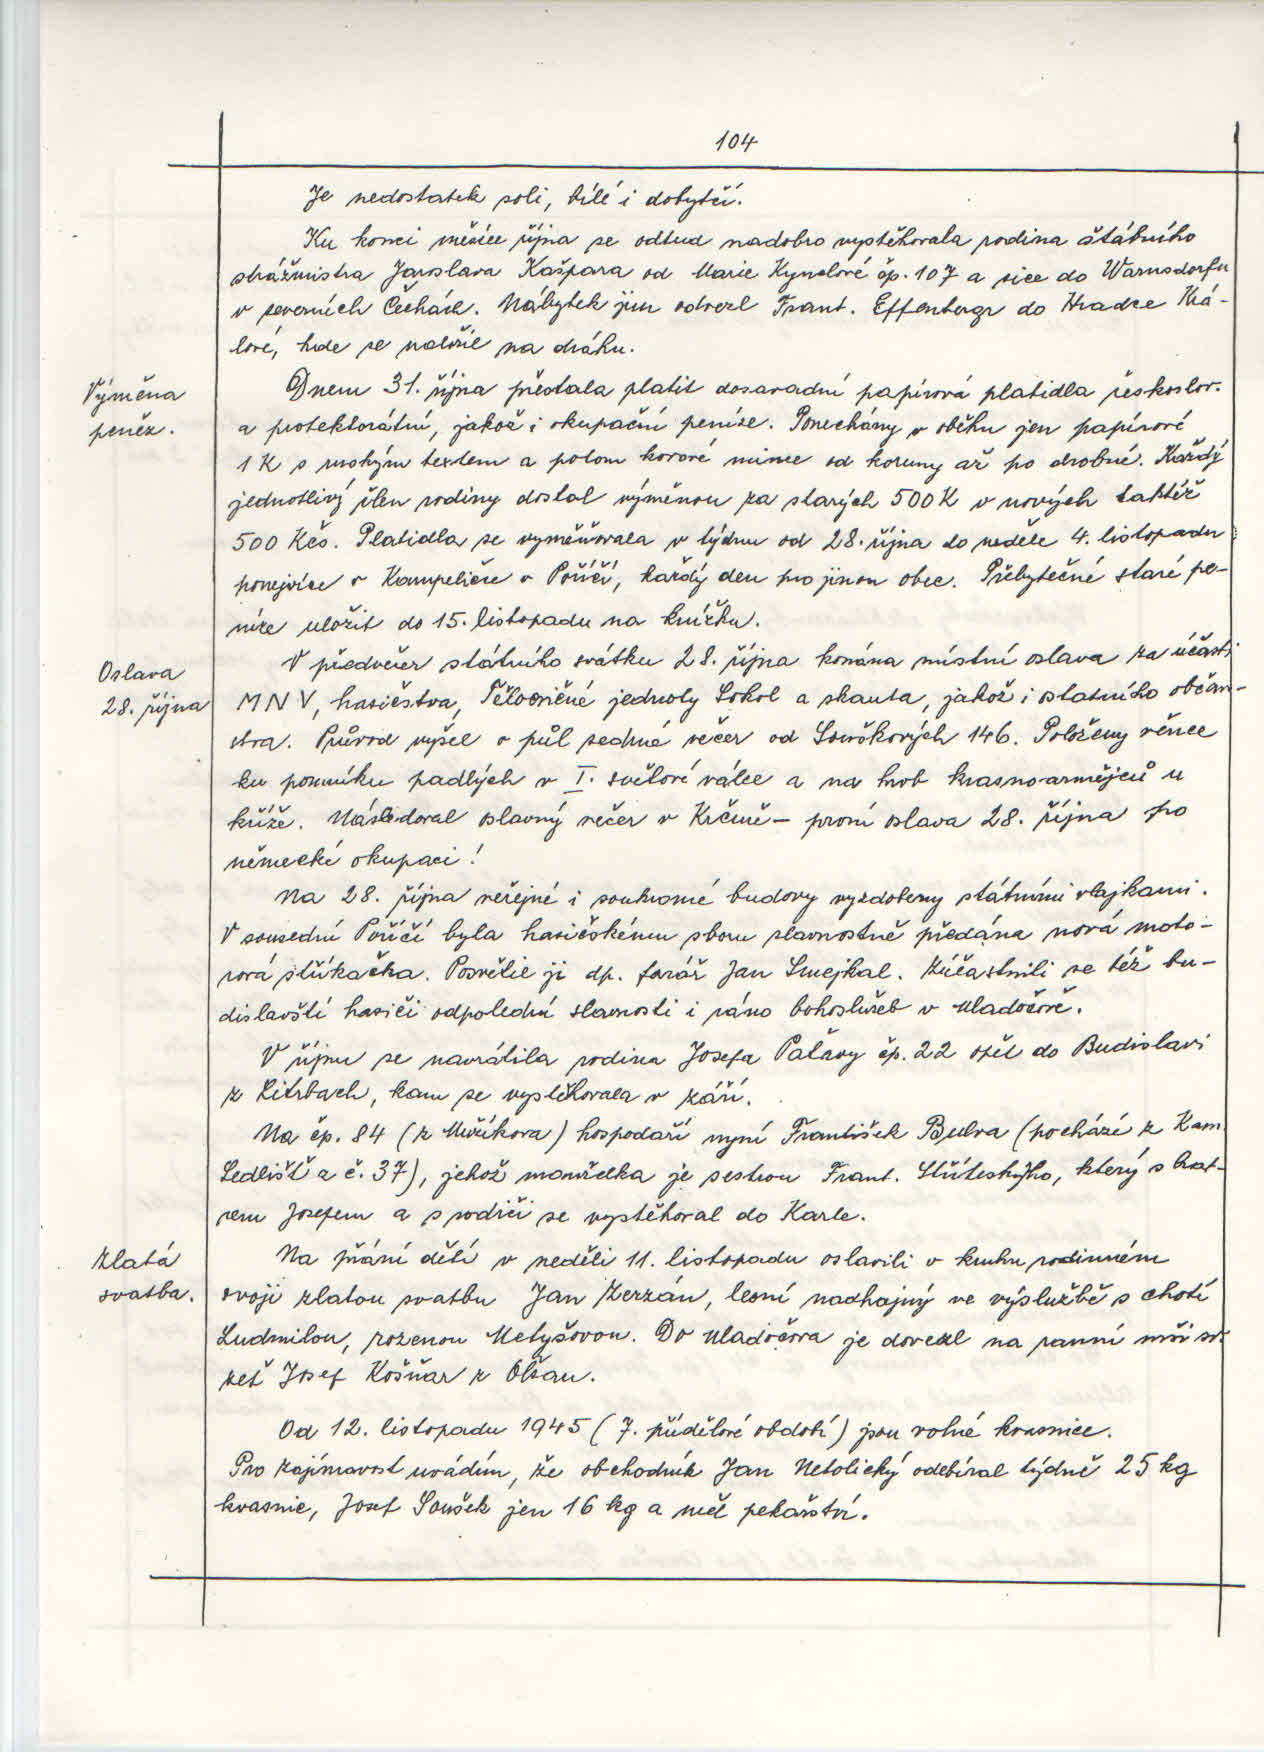 104
Je nedostatek soli, bílé i dobytčí.
Ku konci měsíce října se odtud nadobro vystěhovala rodina štábního
strážmistra Jaroslava Kašpara od Marie Kynclové čp. 107 a sice do Warnsdorfu
v severních Čechách. Nábytek jim odvezl Frant. Effenbergr do Hradce Krá-
lové, kde se naložil na dráhu.
Výměna
peněz.
Dnem 31. října přestala platit dosavadní papírová platidla českoslov.
a protektorátní, jakož i okupační peníze. Ponechány v oběhu jen papírové
1 K s ruským textem a potom kovové mince od koruny až po drobné. Každý
jednotlivý člen rodiny dostal výměnou za starých 500 K v nových taktéž
500 Kčs. Platidla se vyměňovala v týdnu od 28. října do neděle 4. listopadu
ponejvíce v Kampeličce v Poříčí, každý den pro jinou obec. Přebytečné staré pe-
níze uložit do 15. listopadu na knížku.
Oslava
28. října
V předvečer státního svátku 28. října konána místní oslava za účasti
MNV, hasičstva, Tělocvičné jednoty Sokol a skauta, jakož i ostatního občan-
stva. Průvod vyšel v půl sedmé večer od Souškových 146. Položeny věnce
ku pomníku padlých v I. světové válce a na hrob krasnoarmějců u
kříže. Následoval oslavný večer v Krčmě – první oslava 28. října po
německé okupaci!
Na 28. října veřejné i soukromé budovy vyzdobeny státními vlajkami.
V sousední Poříčí byla hasičskému sboru slavnostně předána nová moto-
rová stříkačka. Posvětil ji dp. farář Jan Smejkal. Zúčastnili se též bu-
dislavští hasiči odpolední slavnosti i ráno bohoslužeb v Mladočově.
V říjnu se navrátila rodina Josefa Pačavy čp. 22 opět do Budislavi
z Litrbach, kam se vystěhovala v září.
Na čp. 84 (z Mužíkova) hospodaří nyní František Bulva (pochází z Kam.
Sedliště č. 37), jehož manželka je sestrou Frant. Stříteského, který s brat-
rem Josefem a s rodiči se vystěhoval do Karle.
Zlatá
svatba.
Na přání dětí v neděli 11. listopadu oslavili v kruhu rodinném
svoji zlatou svatbu Jan Zerzán, lesní nadhajný ve výslužbě s chotí
Ludmilou, rozenou Metyšovou. Do Mladočova je dovezl na ranní mši sv.
zeť Josef Košňar z Olšan.
Od 12. listopadu 1945 (7. přídělové období) jsou volné kvasnice.
Pro zajímavost uvádím, že obchodník Jan Netolický odebíral týdně 25 kg
kvasnic, Josef Soušek jen 16 kg a měl pekařství.